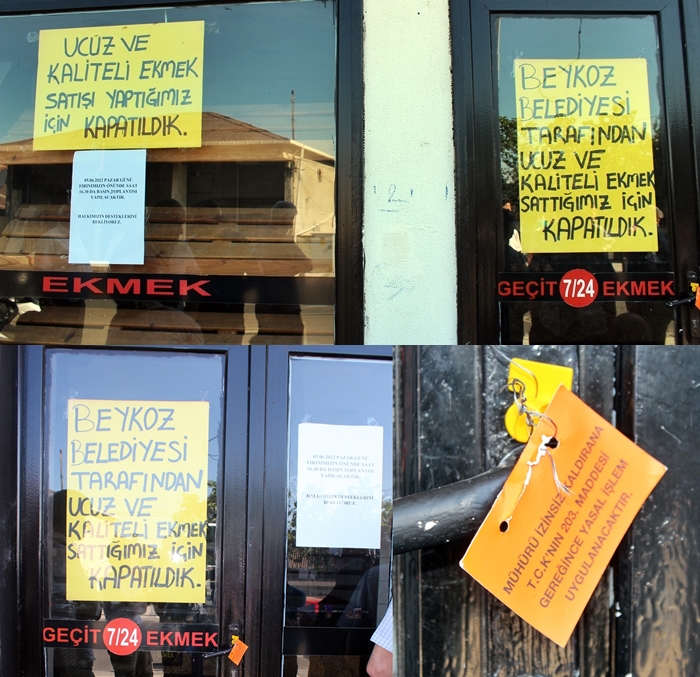 UCUZ VE
KALİTELİ EKMEK
SATIŞI YAPTIĞIMIZ
İÇİN KAPATILDIK.
05.06.2022 PAZAR GÜNÜ
FIRINIMIZIN ÖNÜNDE SAAT
16.30 DA BASIN TOPLANTISI
YAPILACAKTIR.
HALKIMIZIN DESTEKLERİNİ
BEKLİYORUZ.
EKMEK
BEYKOZ
BELEDİYESİ
TARAFINDAN
UCUZ VE
KALİTELİ EKMEK
SATTIĞIMIZ İÇİN
KAPATILDIK.
GEÇİT 7/24 EKMEK
BEYKOZ
BELEDİYESİ
TARAFINDAN
UCUZ VE
KALİTELİ EKMEK
SATTIĞIMIZ İÇİN
KAPATILDIK.
GEÇİT 7/24 EKMEK
05.06.2022 PAZAR GÜNÜ
FIRINIMIZIN ÖNÜNDE SAAT
16.30 DA BASIN TOPLANTISI
YAPILACAKTIR.
HALKIMIZIN DESTEKLERİNİ
BEKLİYORUZ.
MÜHÜRÜ İZİNSİZ KALDIRANA
T.C.K'NIN 203. MADDESİ
GEREĞİNCE YASAL İŞLEM
UYGULANACAKTIR.